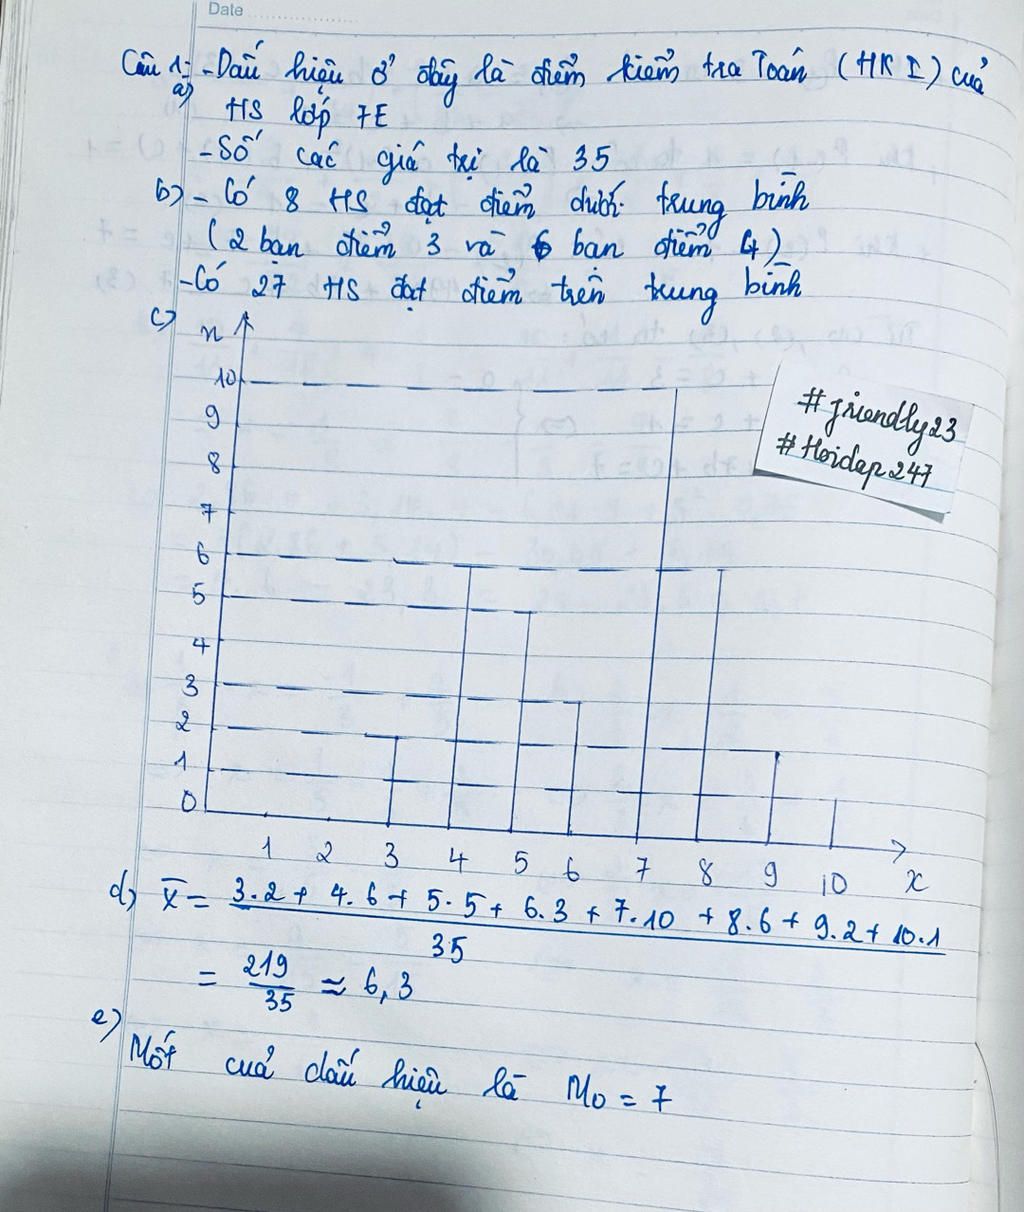 Date
Câu 1: - Dấu hiệu ở đây là điểm kiểm tra Toán (HKI) của
a) HS lớp 7E
- Số các giá trị là 35
b) - Có 8 HS đạt điểm dưới trung bình
(2 bạn điểm 3 và 6 bạn điểm 4)
- Có 27 HS đạt điểm trên trung bình
c) n
10
9
8
7
6
5
4
3
2
1
0
#friendly23
#Hoidap247
1 2 3 4 5 6 7 8 9 10 x
d) X̄ = 3.2 + 4.6 + 5.5 + 6.3 + 7.10 + 8.6 + 9.2 + 10.1
35
= 219/35 ≈ 6,3
e)
Mốt của dấu hiệu là M0 = 7